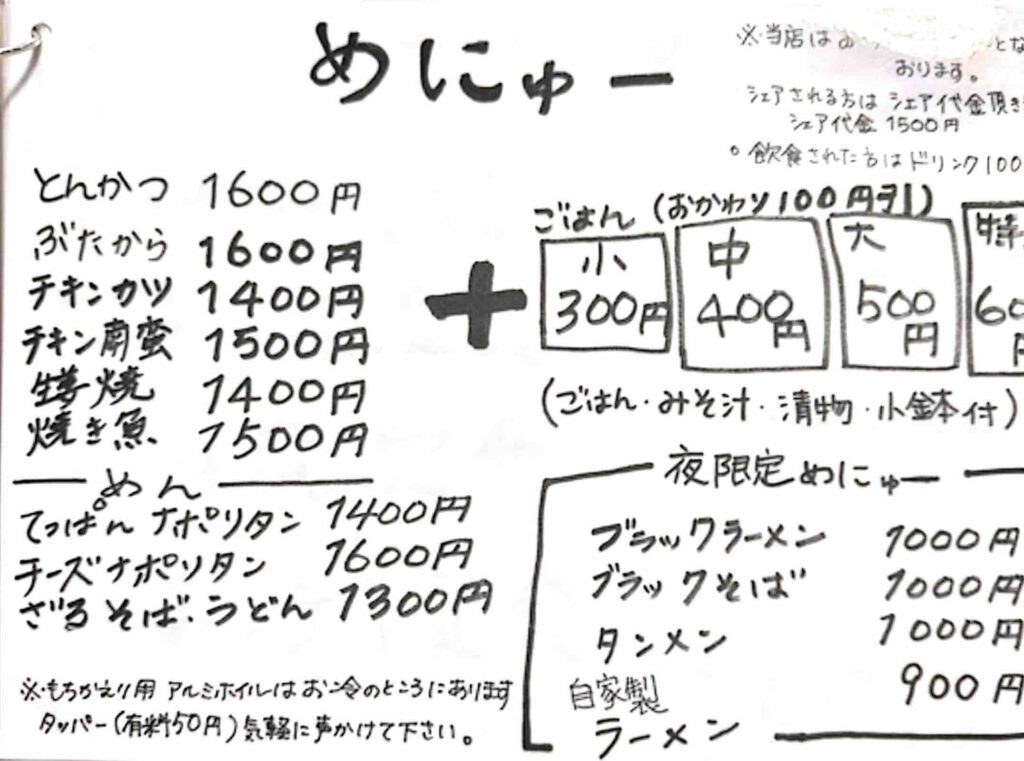 めにゅー
※当店は
おります。
シェアされる方は シェア代金頂き
シェア代金 1500円
飲食された方はドリンク100
とんかつ 1600円
ぶたから 1600円
チキンカツ 1400円
チキン南蛮 1500円
生姜焼 1400円
焼き魚 1500円
+
ごはん (おかわり100円引)
小 300円
中 400円
大 500円
(ごはん・みそ汁・漬物・小鉢付)
めん
てっぱんナポリタン 1400円
チーズナポリタン 1600円
ざるそば・うどん 1300円
夜限定めにゅー
ブラックラーメン 1000円
ブラックそば 1000円
タンメン 1000円
自家製ラーメン 900円
※もちかえり用 アルミホイルはお冷のところにあります
タッパー(有料50円)気軽に声かけて下さい。